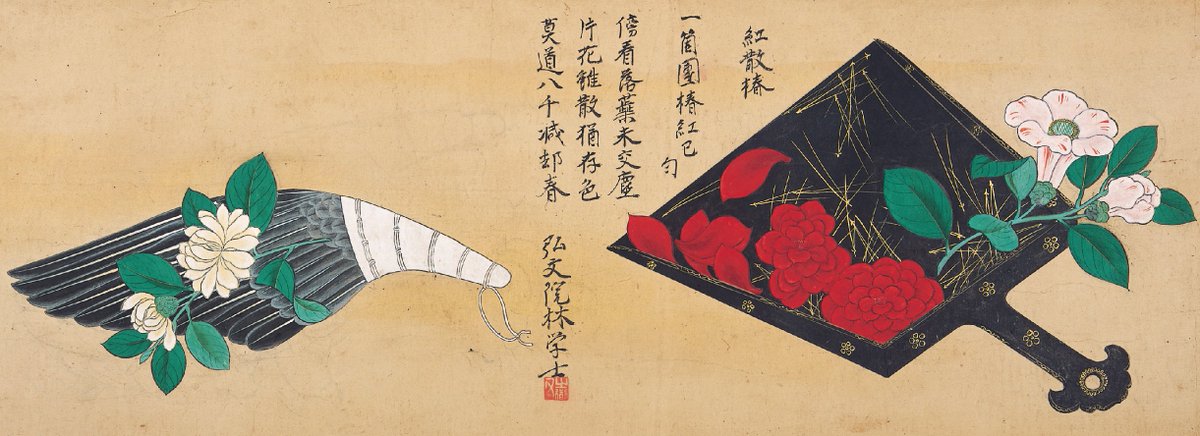 紅散椿
一箇團椿紅已勻
傍看落葉未交塵
片花雖散猶存色
莫道八千減却春
弘文院林学士